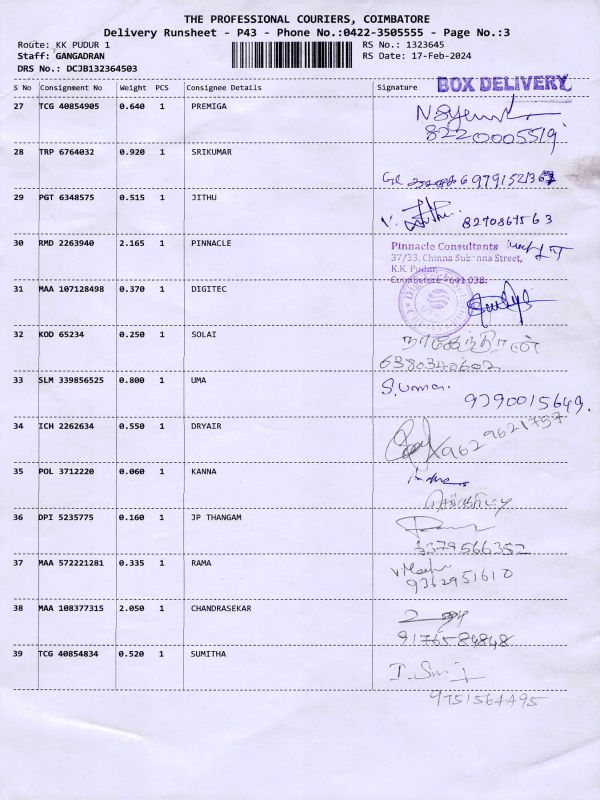 THE PROFESSIONAL COURIERS, COIMBATORE
Delivery Runsheet - P43 - Phone No.:0422-3505555 - Page No.:3
Route: KK PUDUR 1 RS No.: 1323645
Staff: GANGADRAN RS Date: 17-Feb-2024
DRS No.: DCJB132364503
BOX DELIVERY
S No Consignment No Weight PCS Consignee Details Signature
27 TCG 40854905 0.640 1 PREMIGA
8220005519
28 TRP 6764032 0.920 1 SRIKUMAR
29 PGT 6348575 0.515 1 JITHU
30 RMD 2263940 2.165 1 PINNACLE
Pinnacle Consultants
37/33, Chinna Subanna Street,
K.K. Pudur,
Coimbatore - 641 038.
31 MAA 107128498 0.370 1 DIGITEC
32 KOD 65234 0.250 1 SOLAI
நாகேந்திரன்
33 SLM 339856525 0.800 1 UMA S.Uma.
9390015649.
34 ICH 2262634 0.550 1 DRYAIR
9629621757
35 POL 3712220 0.060 1 KANNA
36 DPI 5235775 0.160 1 JP THANGAM
6379566352
37 MAA 572221281 0.335 1 RAMA
9362951610
38 MAA 108377315 2.050 1 CHANDRASEKAR
9176584848
39 TCG 40854834 0.520 1 SUMITHA
9751564495